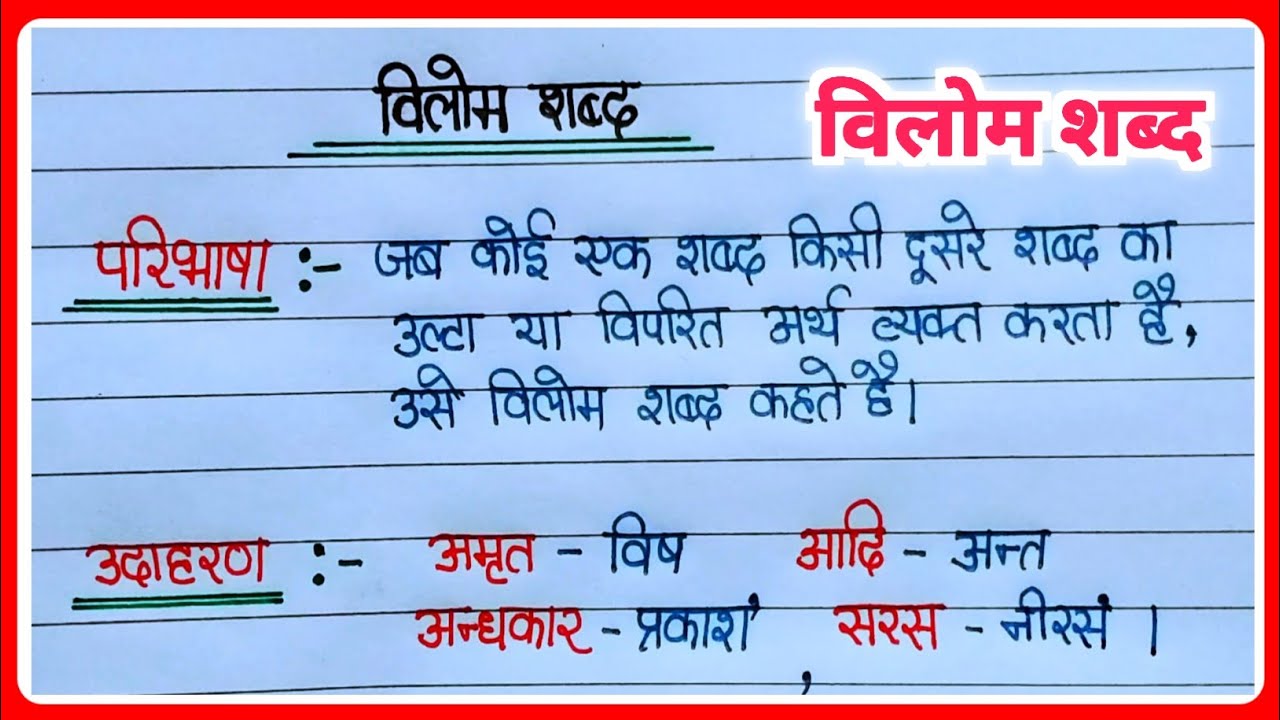 विलोम शब्द
विलोम शब्द
परिभाषा :- जब कोई एक शब्द किसी दूसरे शब्द का
उल्टा या विपरित अर्थ व्यक्त करता है,
उसे विलोम शब्द कहते है।
उदाहरण :- अमृत - विष आदि - अन्त
अन्धकार - प्रकाश, सरस - नीरस ।